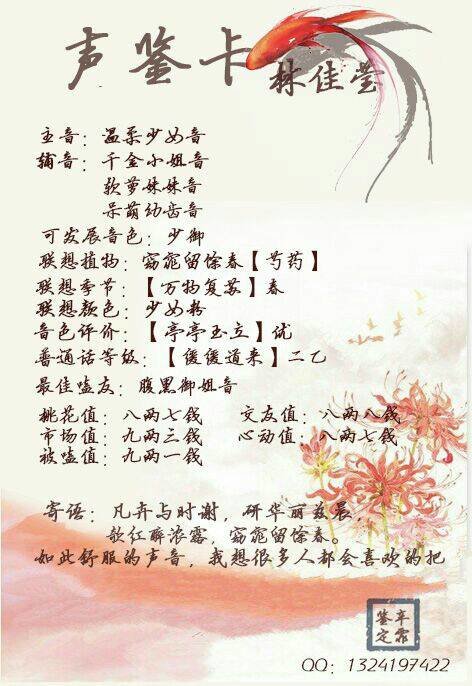 声鉴卡
林佳莹
主音：温柔少女音
辅音：千金小姐音
软萝妹妹音
呆萌幼齿音
可发展音色：少御
联想植物：窈窕留馀春【芍药】
联想季节：【万物复苏】春
联想颜色：少女粉
音色评价：【亭亭玉立】优
普通话等级：【缓缓道来】二乙
最佳嗑友：腹黑御姐音
桃花值：八两七钱 交友值：八两八钱
市场值：九两三钱 心动值：八两七钱
被嗑值：九两一钱
寄语：凡卉与时谢，研华丽兹晨，
欹红醉浓露，窈窕留馀春。
如此舒服的声音，我想很多人都会喜欢的把
鉴定
QQ：1324197422